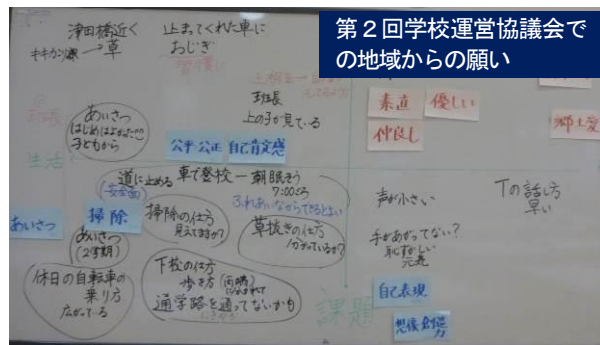 第２回学校運営協議会で
の地域からの願い
津田橋近く
草
止まってくれた車に
おじぎ
班長
上の子が見ている
素直
優しい
仲良し
郷土愛
あいさつ
はじめはよかった
子どもから
公平・公正
自己肯定感
生活
道に止める
車で登校ー朝眠そう
7:00ごろ
(安全面)
ふれあいながらできるとよい
あいさつ
掃除
掃除の仕方
見えてますか?
草抜きの仕方
分かっているか?
あいさつ
(2学期)
休日の自転車の
乗り方
広がっている
下校の仕方
歩き方
通学路を通ってないかも
声が小さい
Tの話し方
早い
手があがってない?
恥ずかしい
元気
自己表現
課題
想像・創造力